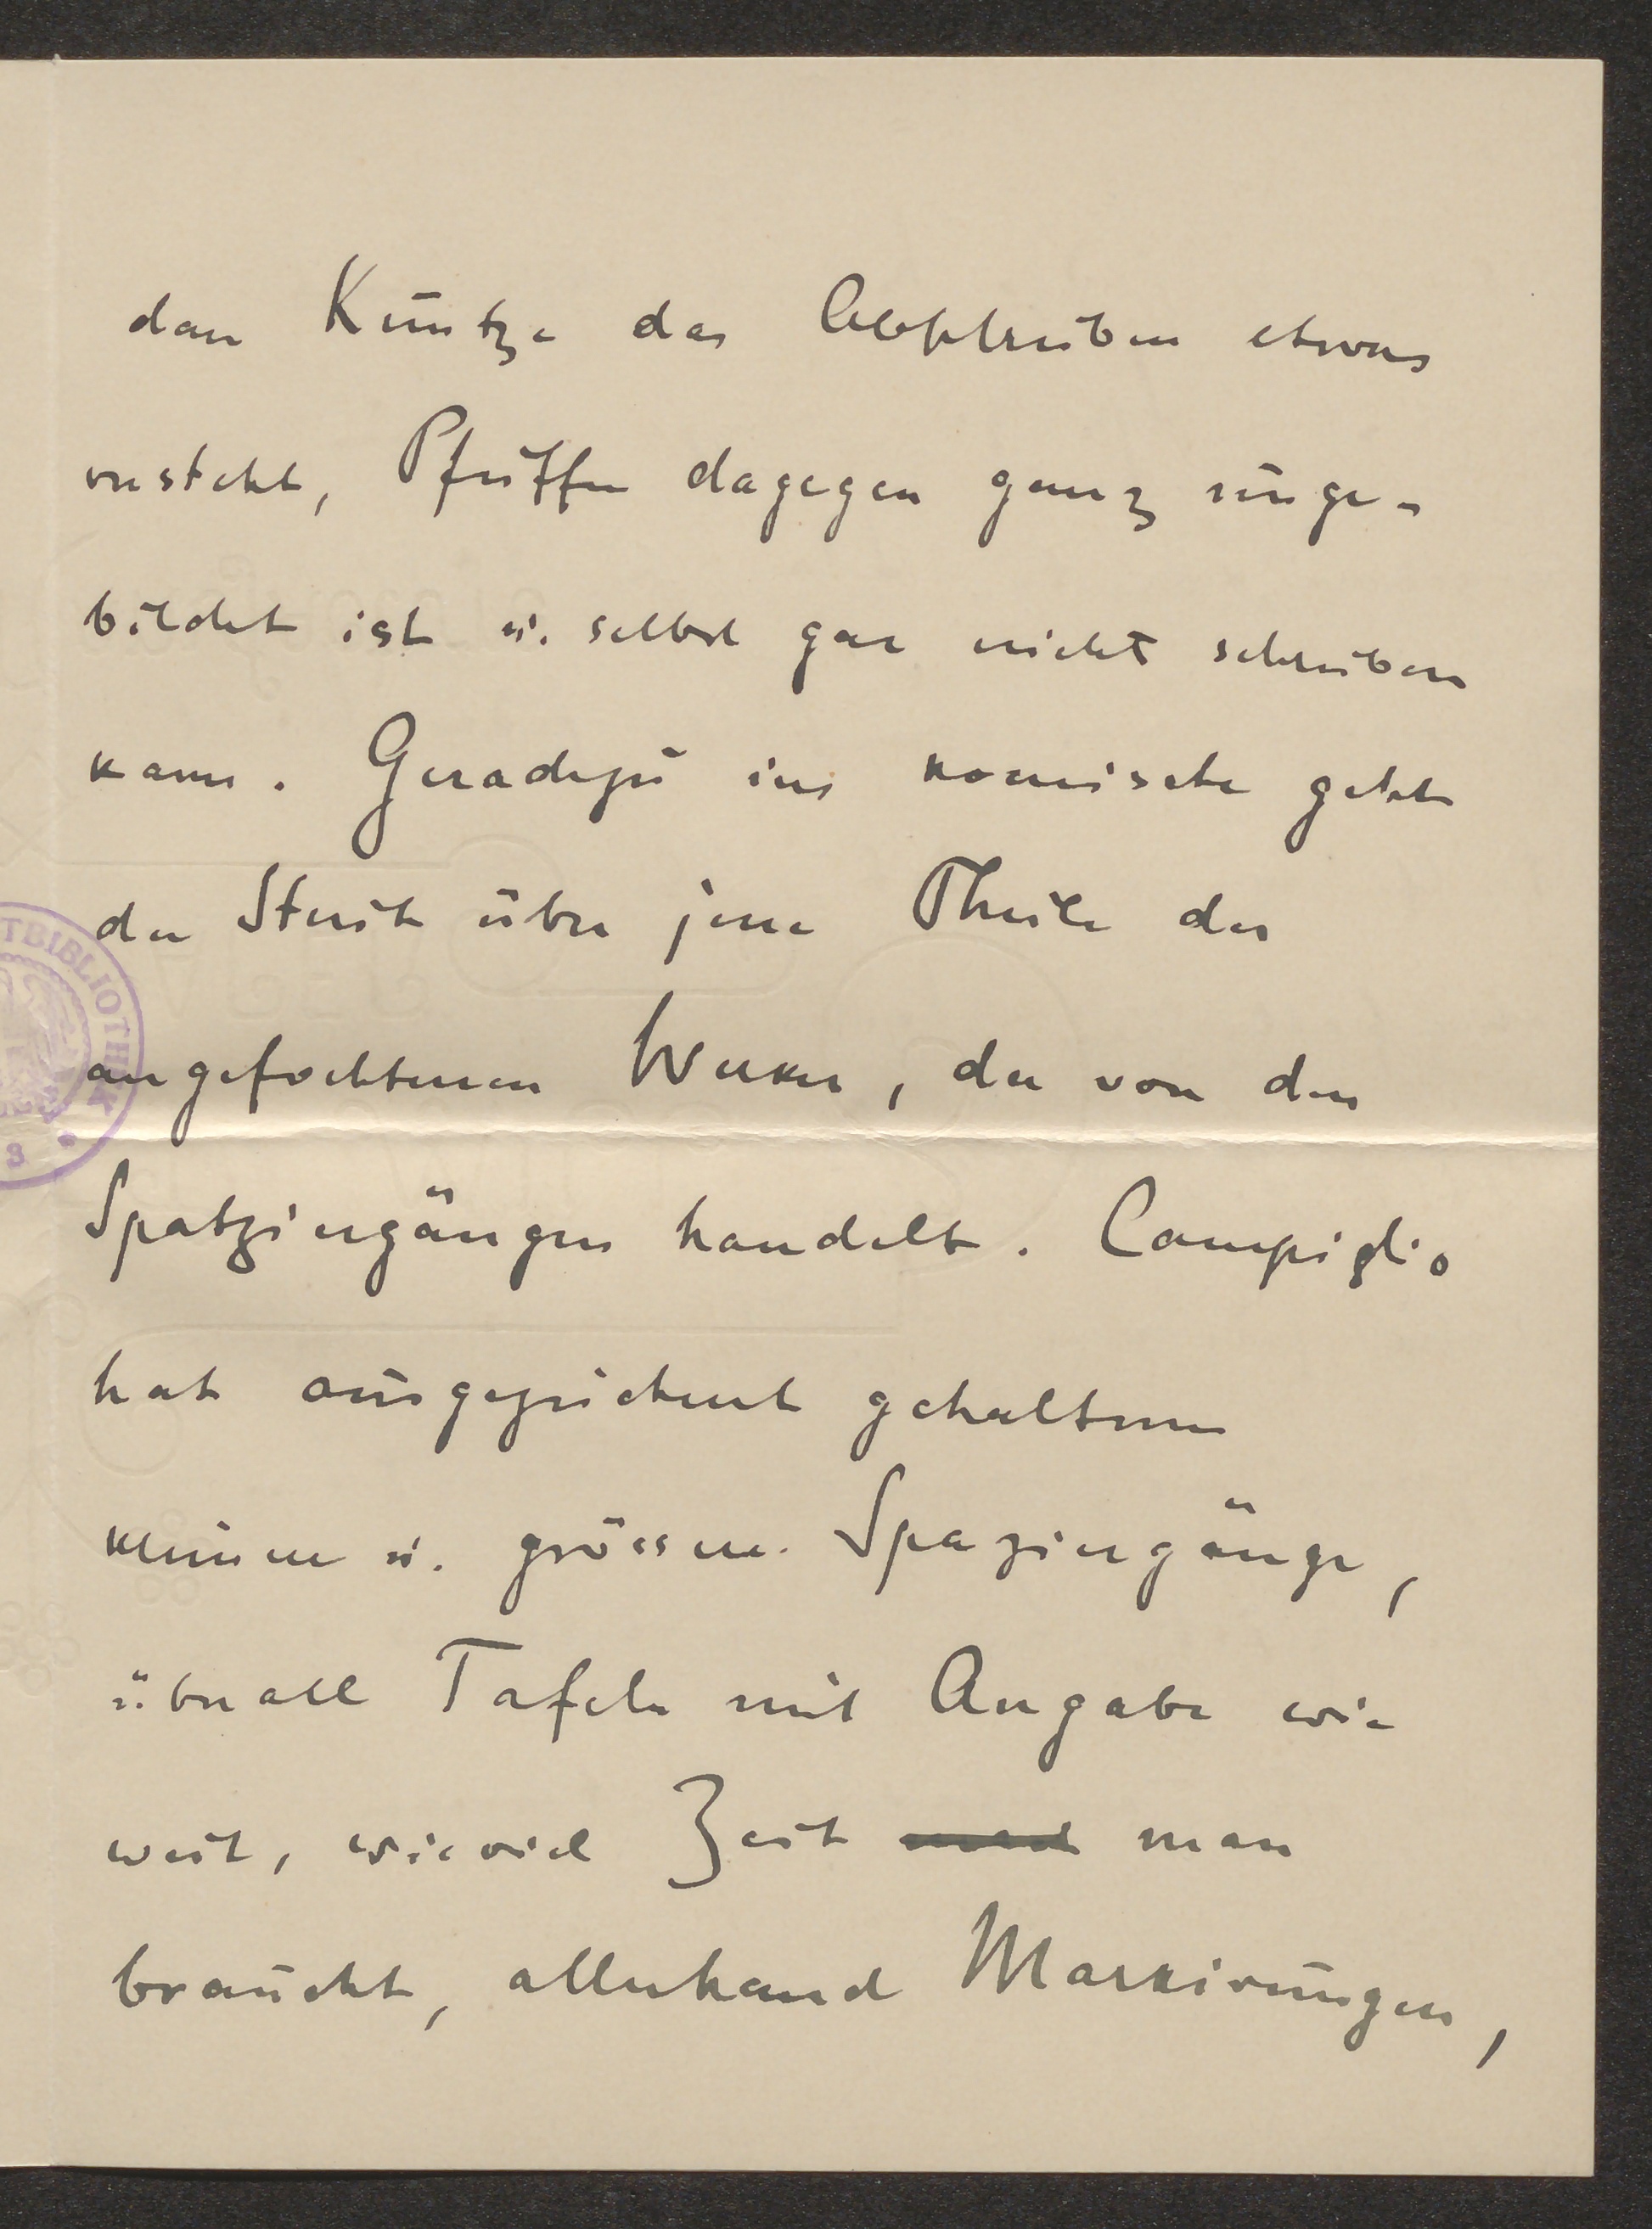 dan Kuntze das Abschreiben etwas
versteht, Pfeiffer dagegen ganz unge-
bildet ist u. selbst gar nicht schreiben
kann. Geradezu ins komische geht
der Streit über jene Theile des
angefochtenen Werkes, der von den
Spatziergängen handelt. Campiglio
hat ausgezeichnet gehaltene
kleinere u. grössere Spaziergänge,
überall Tafeln mit Angabe wie
weit, wieviel Zeit man
braucht, allerhand Markirungen,
TBIBLIOTHEK